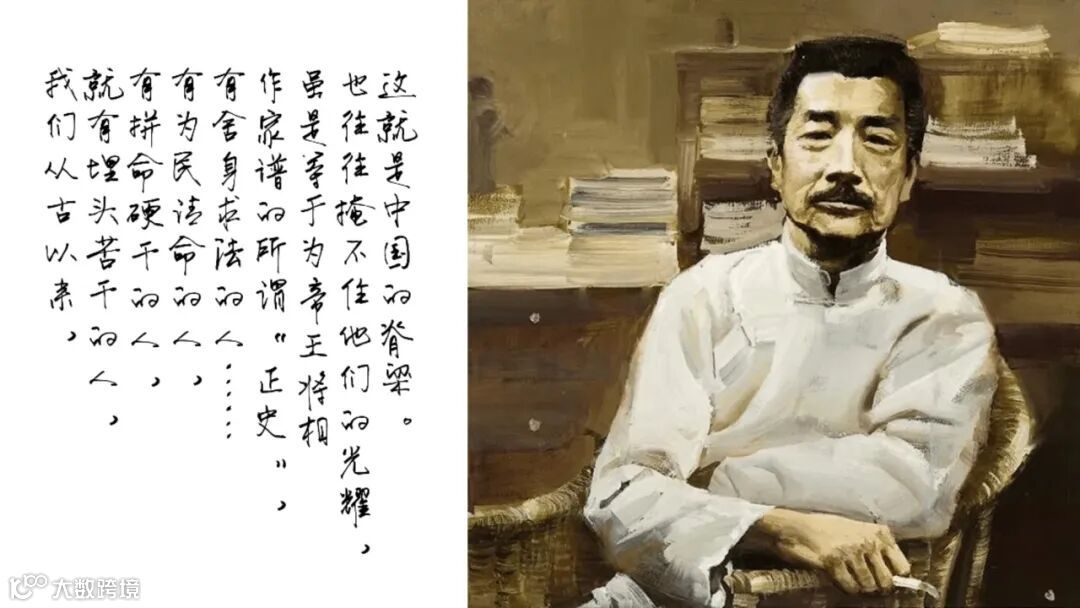 我们从古以来，
就有埋头苦干的人，
有拼命硬干的人，
有为民请命的人，
有舍身求法的人……
作家谱的所谓“正史”，
虽是等于为帝王将相
也往往掩不住他们的光耀，
这就是中国的脊梁。
大数跨境